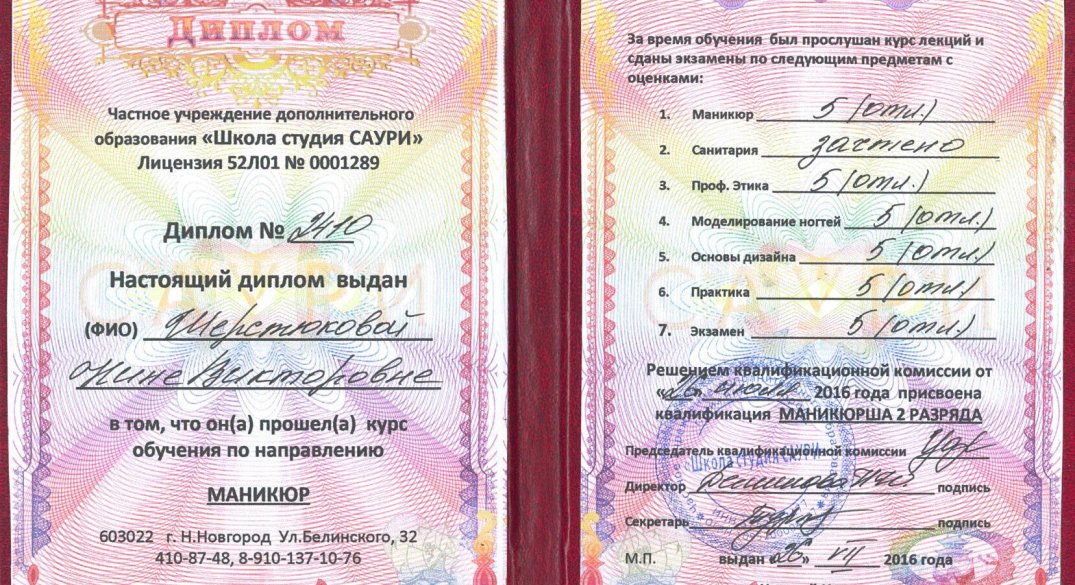 Диплом
Частное учреждение дополнительного
образования «Школа студия САУРИ»
Лицензия 52Л01 № 0001289
Диплом № 2410
Настоящий диплом выдан
(ФИО) Шерстюковой
Нине Викторовне
в том, что он(а) прошел(а) курс
обучения по направлению
МАНИКЮР
603022 г. Н.Новгород Ул.Белинского, 32
410-87-48, 8-910-137-10-76
За время обучения был прослушан курс лекций и
сданы экзамены по следующим предметам с
оценками:
1. Маникюр 5 (отл.)
2. Санитария зачтено
3. Проф. Этика 5 (отл.)
4. Моделирование ногтей 5 (отл.)
5. Основы дизайна 5 (отл.)
6. Практика 5 (отл.)
7. Экзамен 5 (отл.)
Решением квалификационной комиссии от
«26» июля 2016 года присвоена
квалификация МАНИКЮРША 2 РАЗРЯДА
Председатель квалификационной комиссии
Школа студия САУРИ
Директор подпись
Секретарь подпись
М.П. выдан «26» VII 2016 года
САУРИ
САУРИ